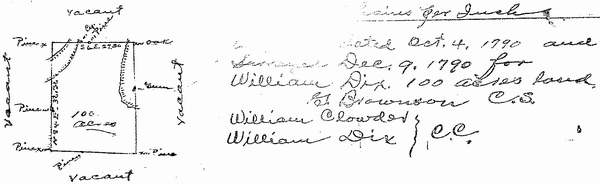 Vacant
Pine x
Pine
w oak
Vacant
Gum
Vacant
Pine
100
acres
Pine x
Pine
Pine
Vacant
Chains per Inch
dated Oct. 4, 1790 and
Surveyed Dec. 9, 1790 for
William Dix. 100 acres land.
Brownson C.S.
William Clowder
William Dix } C.C.